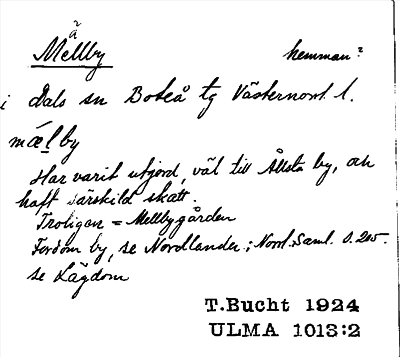 ä
Mellby hemman?
i Dals sn Boteå tg Västernorrl l.
mælby
Har varit utjord, väl till Ållsta by, och
haft särskild skatt.
Troligen = Mellbygården
Fordom by, se Nordlander; Norrl. Saml. s. 205.
se Lägdom
T.Bucht 1924
ULMA 1013:2